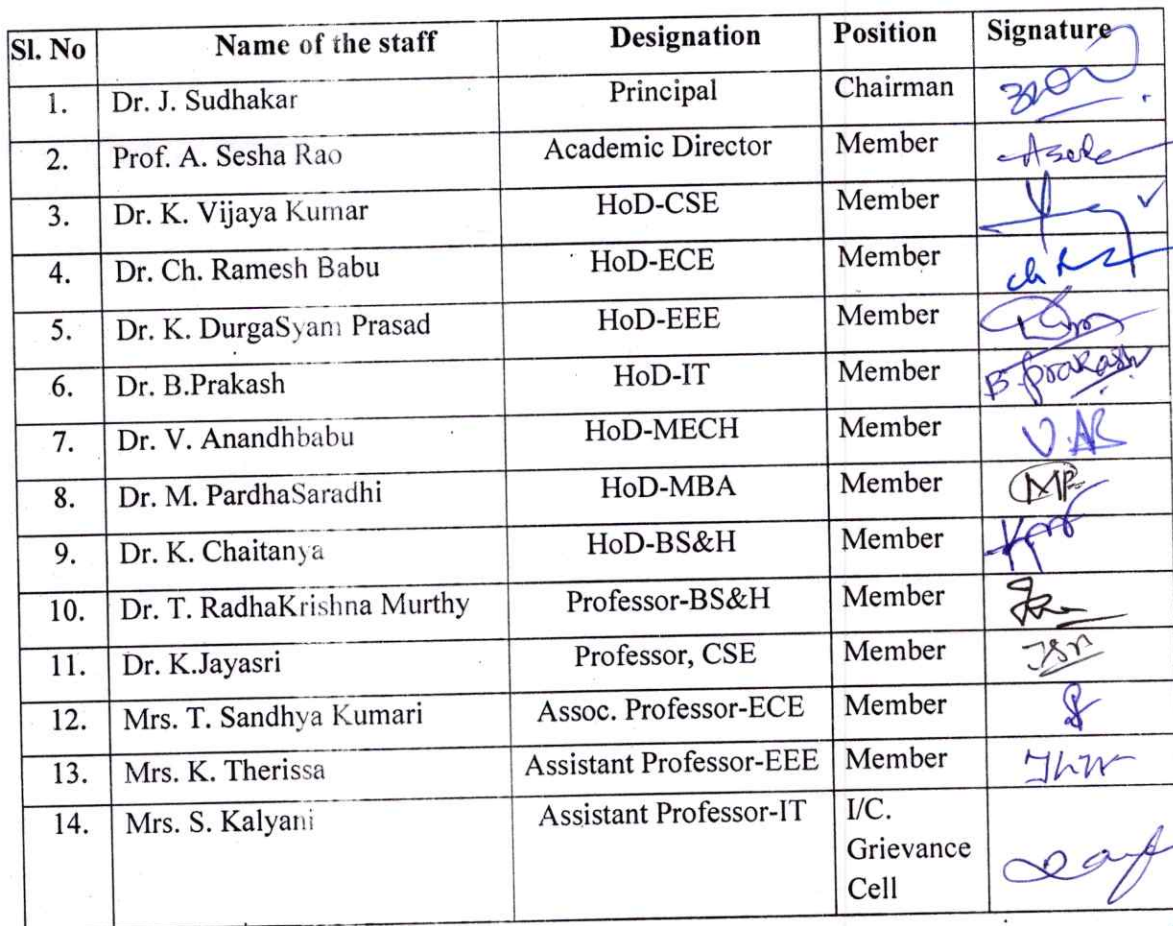 Sl. No Name of the staff Designation Position Signature
1. Dr. J. Sudhakar Principal Chairman
2. Prof. A. Sesha Rao Academic Director Member
3. Dr. K. Vijaya Kumar HoD-CSE Member
4. Dr. Ch. Ramesh Babu HoD-ECE Member
5. Dr. K. DurgaSyam Prasad HoD-EEE Member
6. Dr. B.Prakash HoD-IT Member B.Prakash
7. Dr. V. Anandhbabu HoD-MECH Member
8. Dr. M. PardhaSaradhi HoD-MBA Member
9. Dr. K. Chaitanya HoD-BS&H Member
10. Dr. T. RadhaKrishna Murthy Professor-BS&H Member
11. Dr. K.Jayasri Professor, CSE Member
12. Mrs. T. Sandhya Kumari Assoc. Professor-ECE Member
13. Mrs. K. Therissa Assistant Professor-EEE Member
14. Mrs. S. Kalyani Assistant Professor-IT I/C.
Grievance
Cell